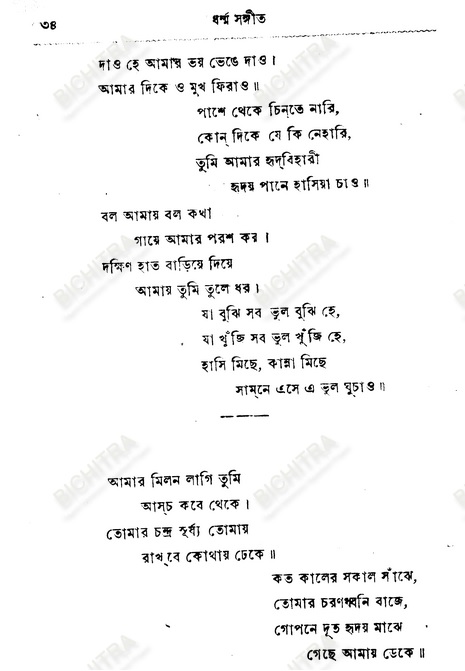 ৩৪
ধর্ম্ম সঙ্গীত
দাও হে আমার ভয় ভেঙে দাও।
আমার দিকে ও মুখ ফিরাও॥
পাশে থেকে চিন্‌তে নারি,
কোন্ দিকে যে কি নেহারি,
তুমি আমার হৃদ্‌বিহারী
হৃদয় পানে হাসিয়া চাও॥
বল আমায় বল কথা
গায়ে আমার পরশ কর।
দক্ষিণ হাত বাড়িয়ে দিয়ে
আমায় তুমি তুলে ধর।
যা বুঝি সব ভুল বুঝি হে,
যা খুঁজি সব ভুল খুঁজি হে,
হাসি মিছে, কান্না মিছে
সাম্‌নে এসে এ ভুল ঘুচাও॥
আমার মিলন লাগি তুমি
আস্‌চ কবে থেকে।
তোমার চন্দ্র সূর্য্য তোমায়
রাখ্‌বে কোথায় ঢেকে॥
কত কালের সকাল সাঁঝে,
তোমার চরণধ্বনি বাজে,
গোপনে দূত হৃদয় মাঝে
গেছে আমায় ডেকে॥
BICHITRA
BICHITRA
BICHITRA
BICHITRA
BICHITRA
BICHITRA
BICHITRA
BICHITRA